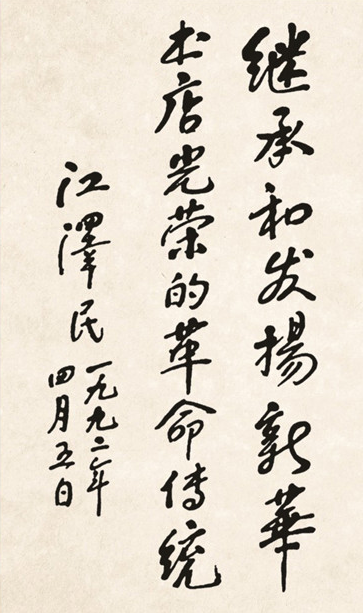 继承和发扬新華
书店光荣的革命传统
江澤民
一九九二年
四月五日